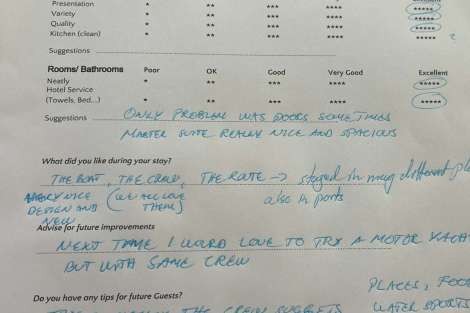 Presentation * ** *** ****
Variety * ** *** **** *****
Quality * ** *** **** *****
Kitchen (clean) * ** *** **** ***** ?
Suggestions
Rooms/ Bathrooms Poor OK Good Very Good Excellent
Neatly * ** *** **** *****
Hotel Service
(Towels, Bed...) * ** *** **** *****
Suggestions ONLY PROBLEM WAS DOORS SOMETIMES
MASTER SUITE REALLY NICE AND SPACIOUS
What did you like during your stay?
THE BOAT, THE CREW, THE ROUTE → stayed in many different
VERY NICE (WE ALL LOVE also in ports
DESIGN AND THEM)
NEW
Advise for future improvements
NEXT TIME I WOULD LOVE TO TRY A MOTOR YACH
BUT WITH SAME CREW
PLACES, FOO
Do you have any tips for future Guests? WATER SPORTS
THE CREW SUGGESTS